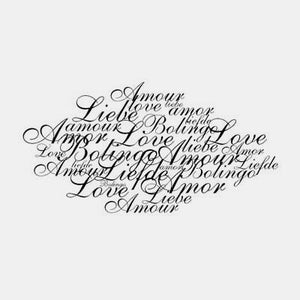 Amour
love liebe
Liebe amor
amour Bolingo liefde
Amor Love liebe Love
Love Bolingo Amour Amor
Amour liefde Liefde amor Bolingo Liefde
Bolingo Love Amor
Liebe
Amour